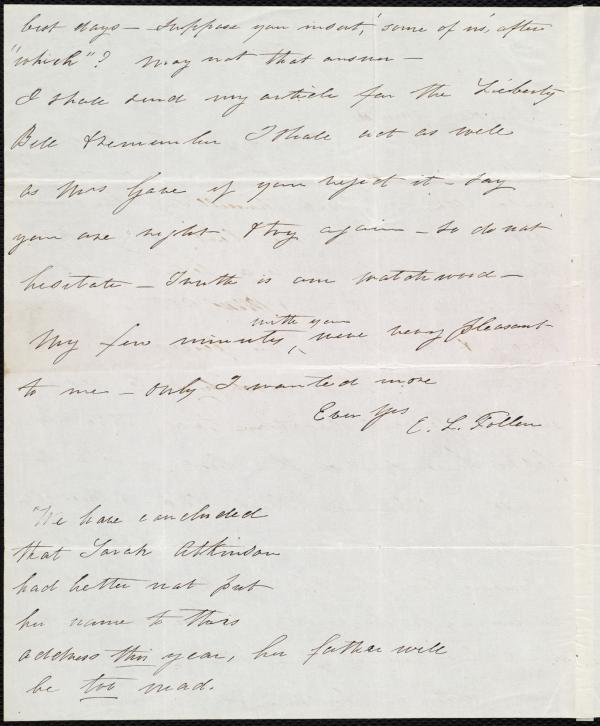 best days — Suppose you insert, 'some of us', after
"which"? May not that answer —
I shall send my article for the Lieberty
Bell & remember I shall act as well
as Mrs if you reject it — say
you are right & try again — so do not
hesitate — Truth is our watchword —
with you
My few minutes, were very pleasant
to me — only I wanted more
Ever Yrs E. L. Follen
We have concluded
that Sarah Atkinson
had better not put
her name to this
address this year, her father will
be too mad.